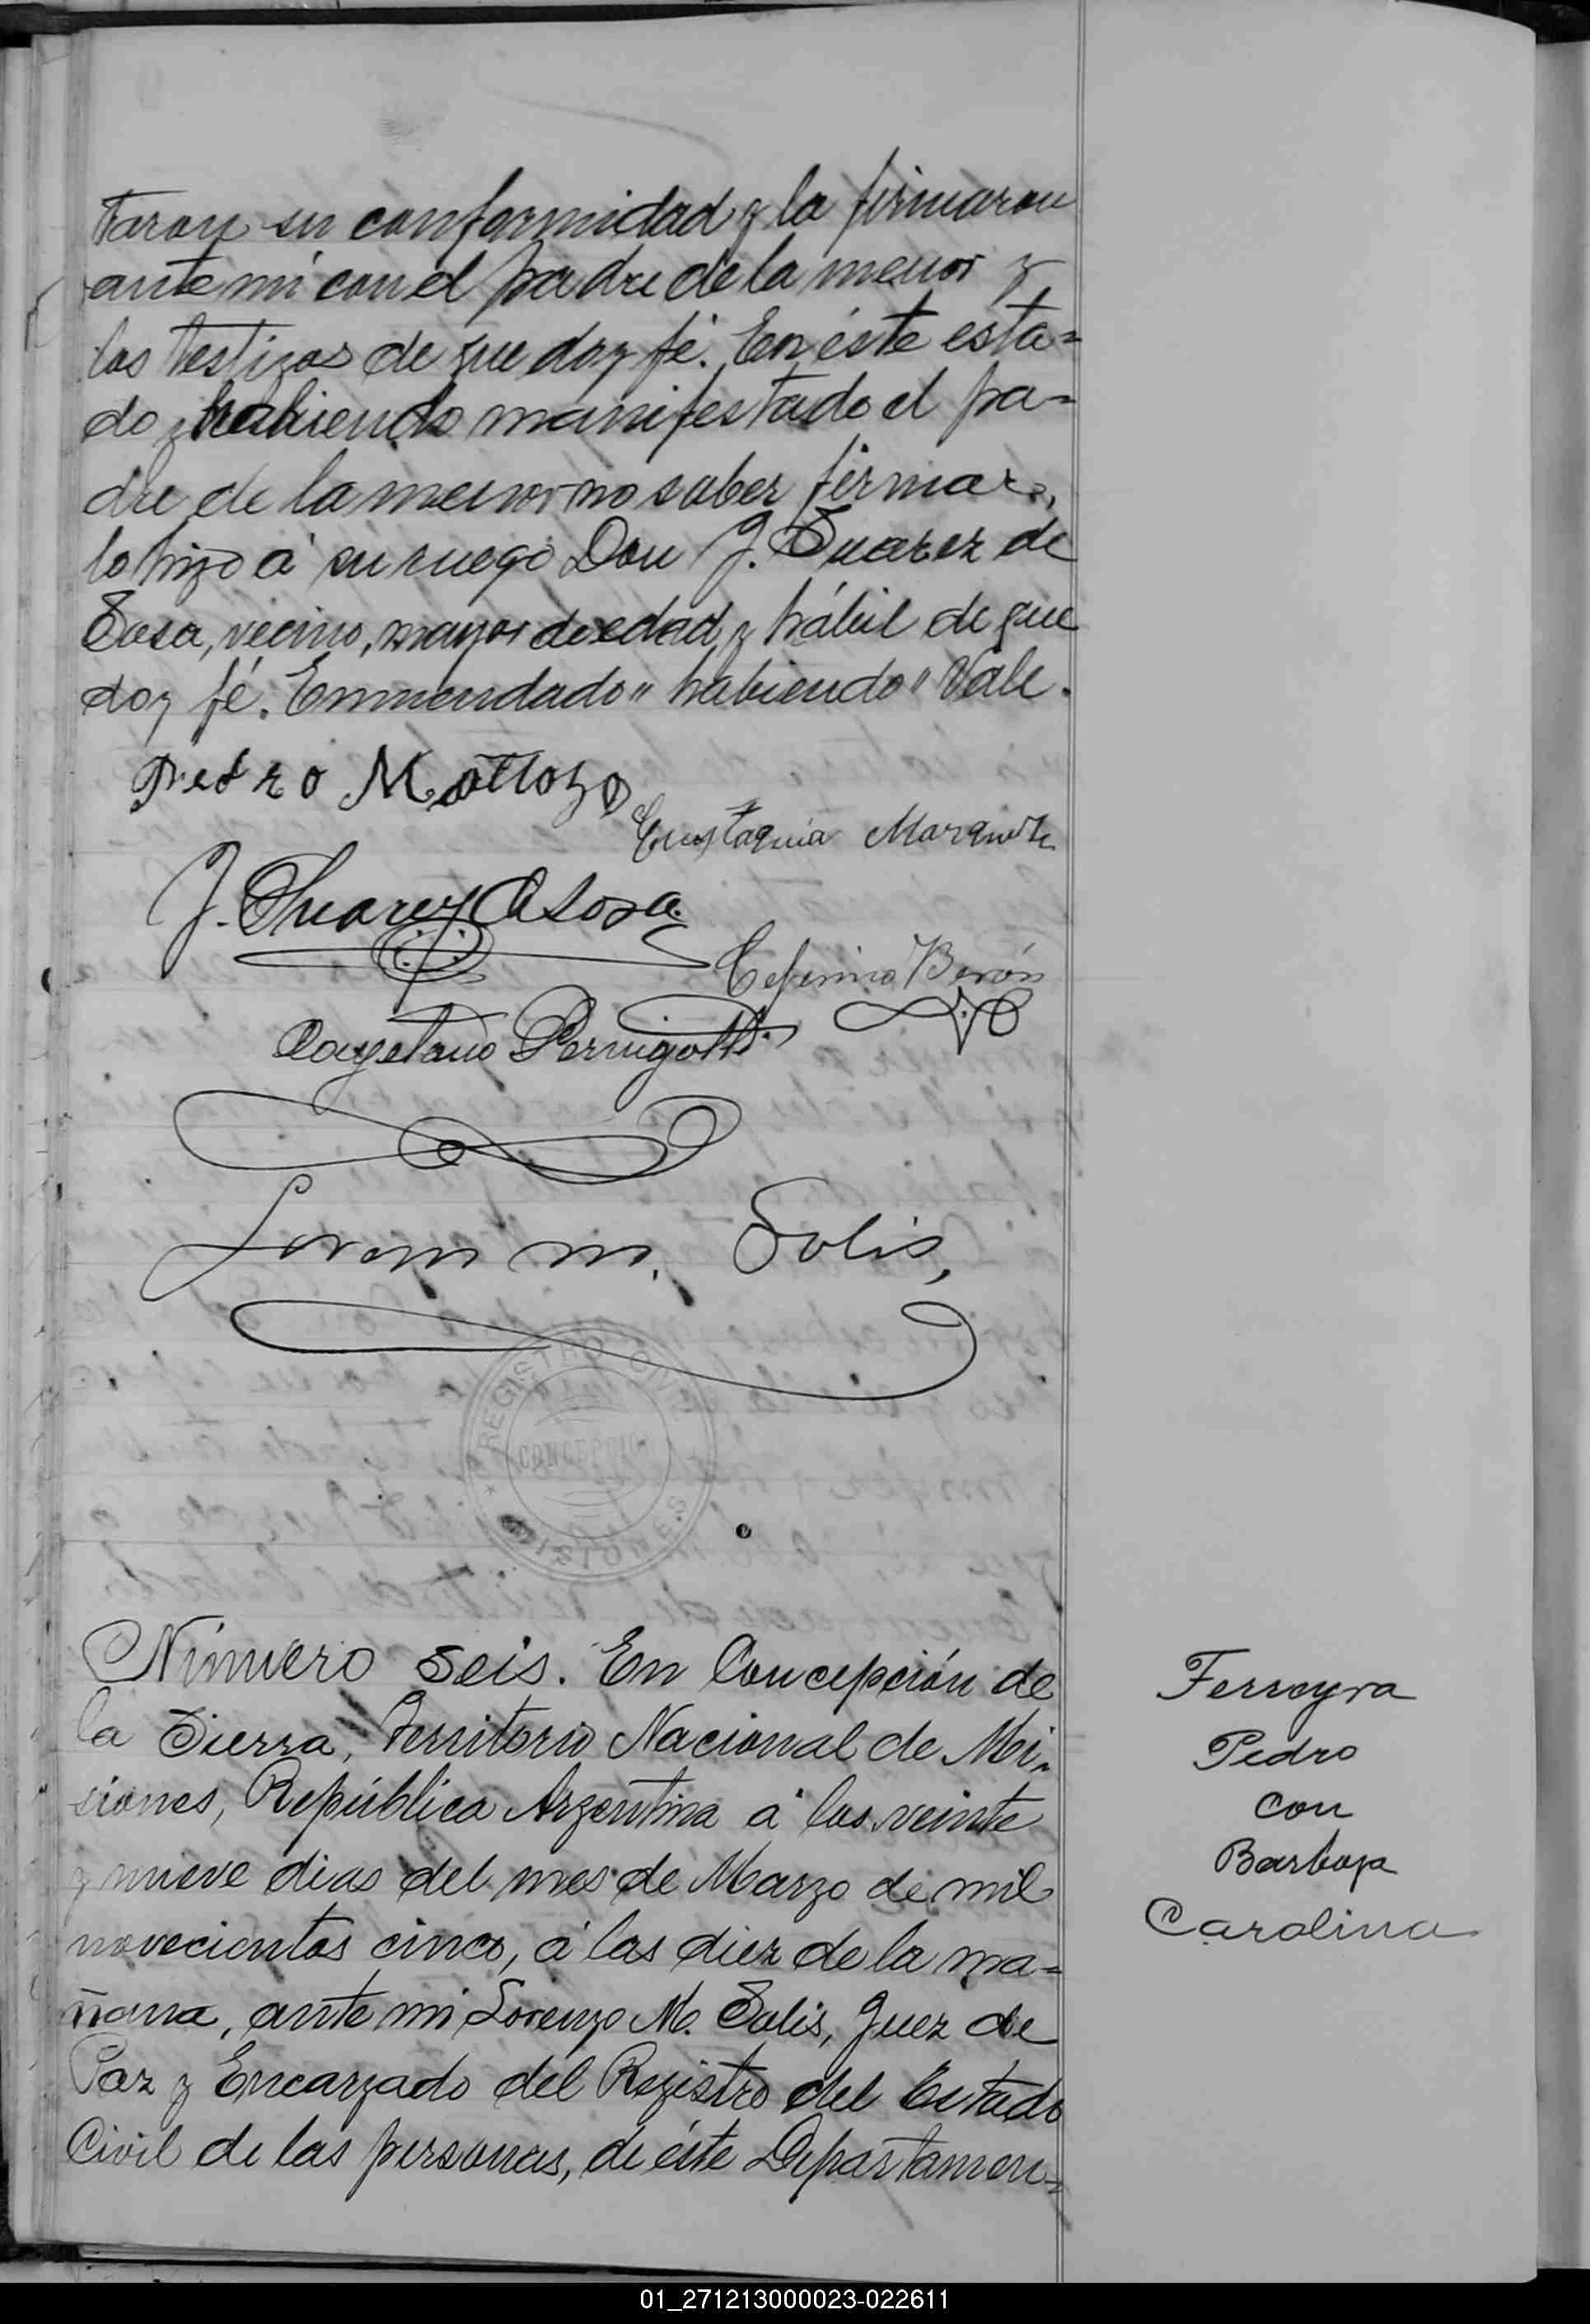 taron su conformidad y la firmaron
ante mi con el padre de la menor y
los testigos de que doy fé. En éste esta=
do y habiendo manifestado el pa=
dre de la menor no saber firmar,
lo hizo á su ruego Don J. Suarez de
Sosa, vecino, mayor de edad y hábil de que
doy fé. Enmendado "habiendo" Vale.
Pedro Mattozo
Eustaquia Marquez
J. Suarez de Sosa
Ceferino Berón
Cayetano Pernigotti
Lorenzo M. Solis,
REGISTRO CIVIL
CONCEPCION
MISIONES
Número seis. En Concepción de
la Sierra, Territorio Nacional de Mi=
siones, República Argentina á los veinte
y nueve dias del mes de Marzo de mil
novecientos cinco, á las diez de la ma=
ñana, ante mi Lorenzo M. Solis, Juez de
Paz y Encargado del Registro del Estado
Civil de las personas, de éste Departamen=
Ferreyra
Pedro
con
Barboza
Carolina
01_271213000023-022611